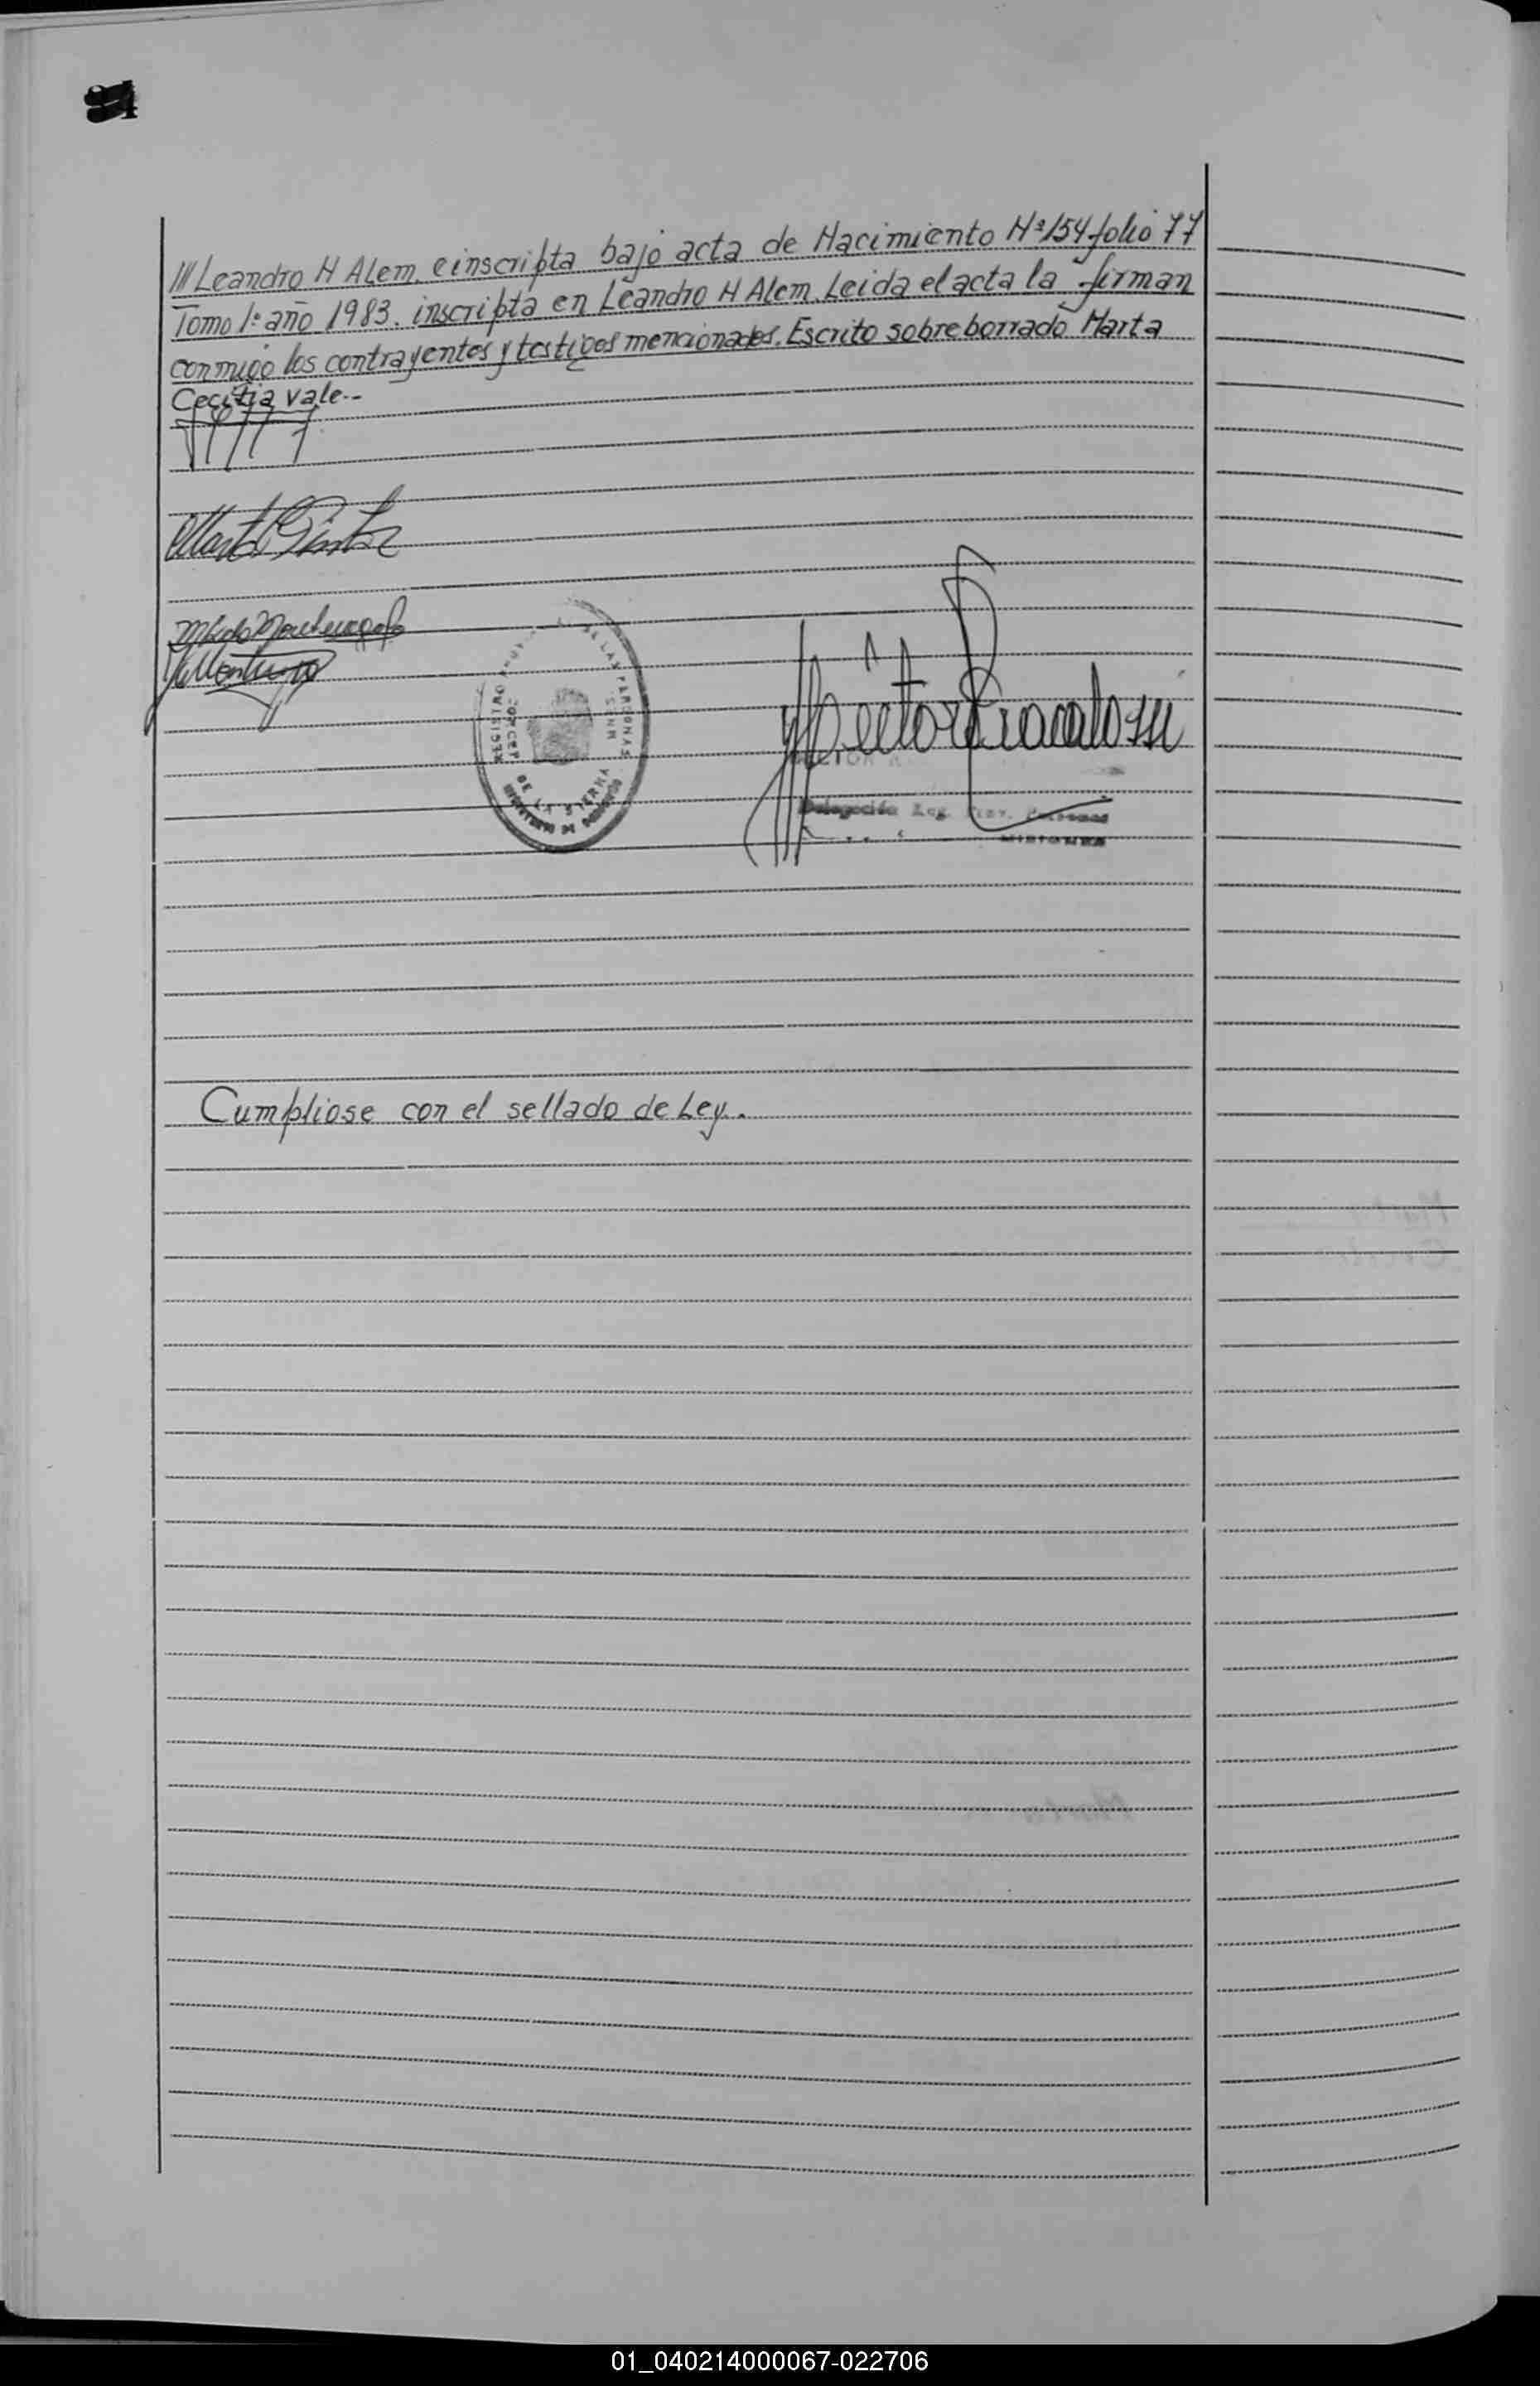 /// Leandro N Alem. e inscripta bajo acta de Nacimiento Nº 154 folio 77
Tomo 1º año 1983. inscripta en Leandro N Alem. Leida el acta la firman
conmigo los contrayentes y testigos mencionados. Escrito sobre borrado Marta
Cecilia vale.-
REGISTRO DE LAS PERSONAS
Delegación Reg. Prov. Personas
MISIONES
Cumpliose con el sellado de Ley.
01_040214000067-022706